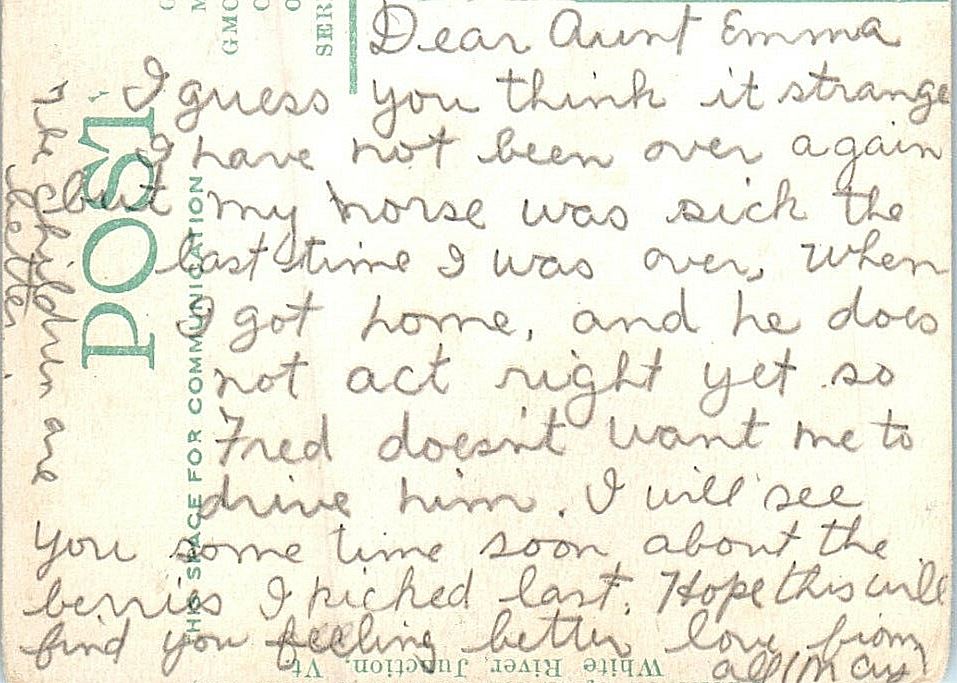 Dear Aunt Emma
I guess you think it strange
I have not been over again
but my horse was sick the
last time I was over, when
I got home, and he does
not act right yet so
Fred doesn't want me to
drive him. I will see
you some time soon about the
berries I picked last. Hope this will
find you feeling better love from
all (May)
The Children are
better.
POST
THIS SPACE FOR COMMUNICATION
White River Junction, Vt.
GMC
SER